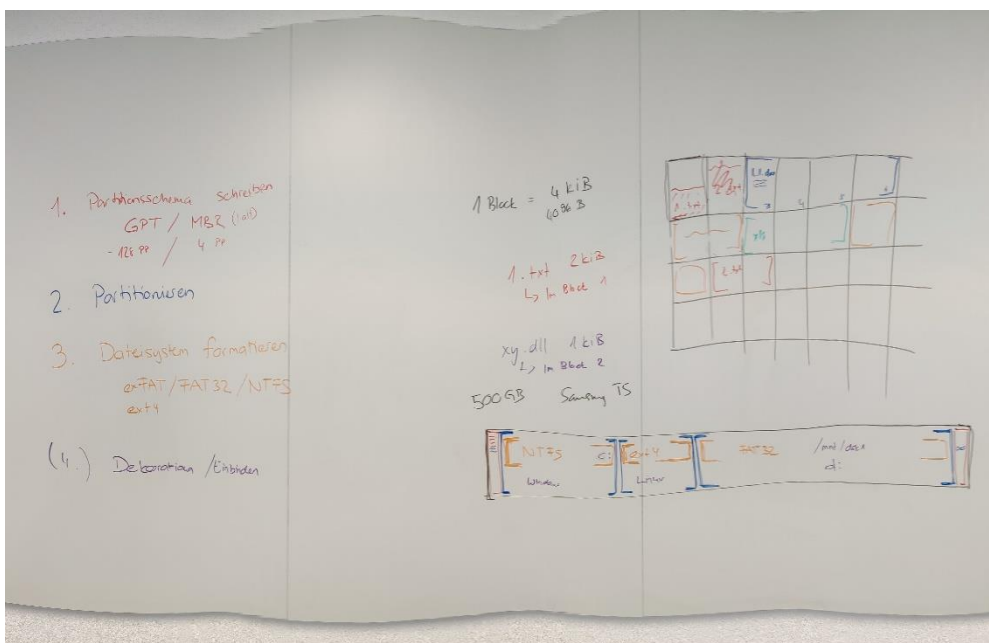 1. Partitionsschema schreiben
GPT / MBR (alt)
~128 PP / 4 PP
2. Partitionieren
3. Dateisystem formatieren
exFAT / FAT32 / NTFS
ext4
(4.) Dekoration / Einbinden
1 Block = 4 kiB
4096 B
1.txt 2 kiB
↳ In Block 1
xy.dll 1 kiB
↳ In Block 2
500GB Samsung T5
NTFS c: ext4 FAT32 /mnt/data
d:
Windows Linux